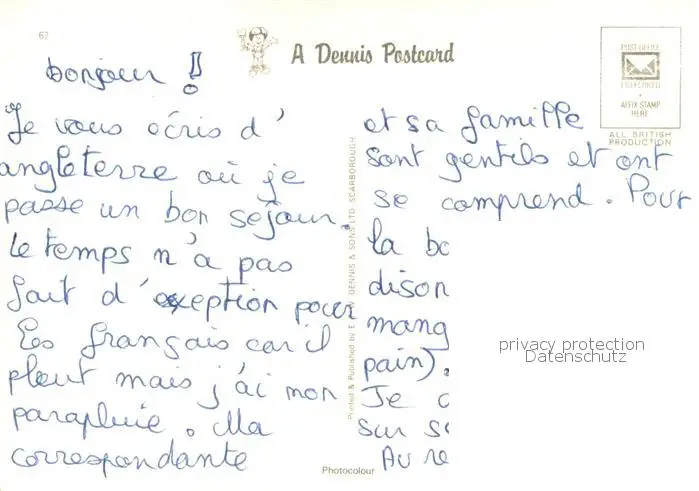 67
A Dennis Postcard
POST OFFICE
PREFERRED
AFFIX STAMP
HERE
ALL BRITISH
PRODUCTION
bonjour !
Je vous écris d'
angleterre où je
passe un bon sejour.
Le temps n'a pas
fait d'exeption pour
les français car il
pleut mais j'ai mon
parapluie. Ma
correspondante
et sa famille
sont gentils et ont
se comprend. Pour
la bo
dison
mang
pain).
Je c
sur s
Au re
Printed & Published by E. DENNIS & SONS LTD SCARBOROUGH
Photocolour
privacy protection
Datenschutz